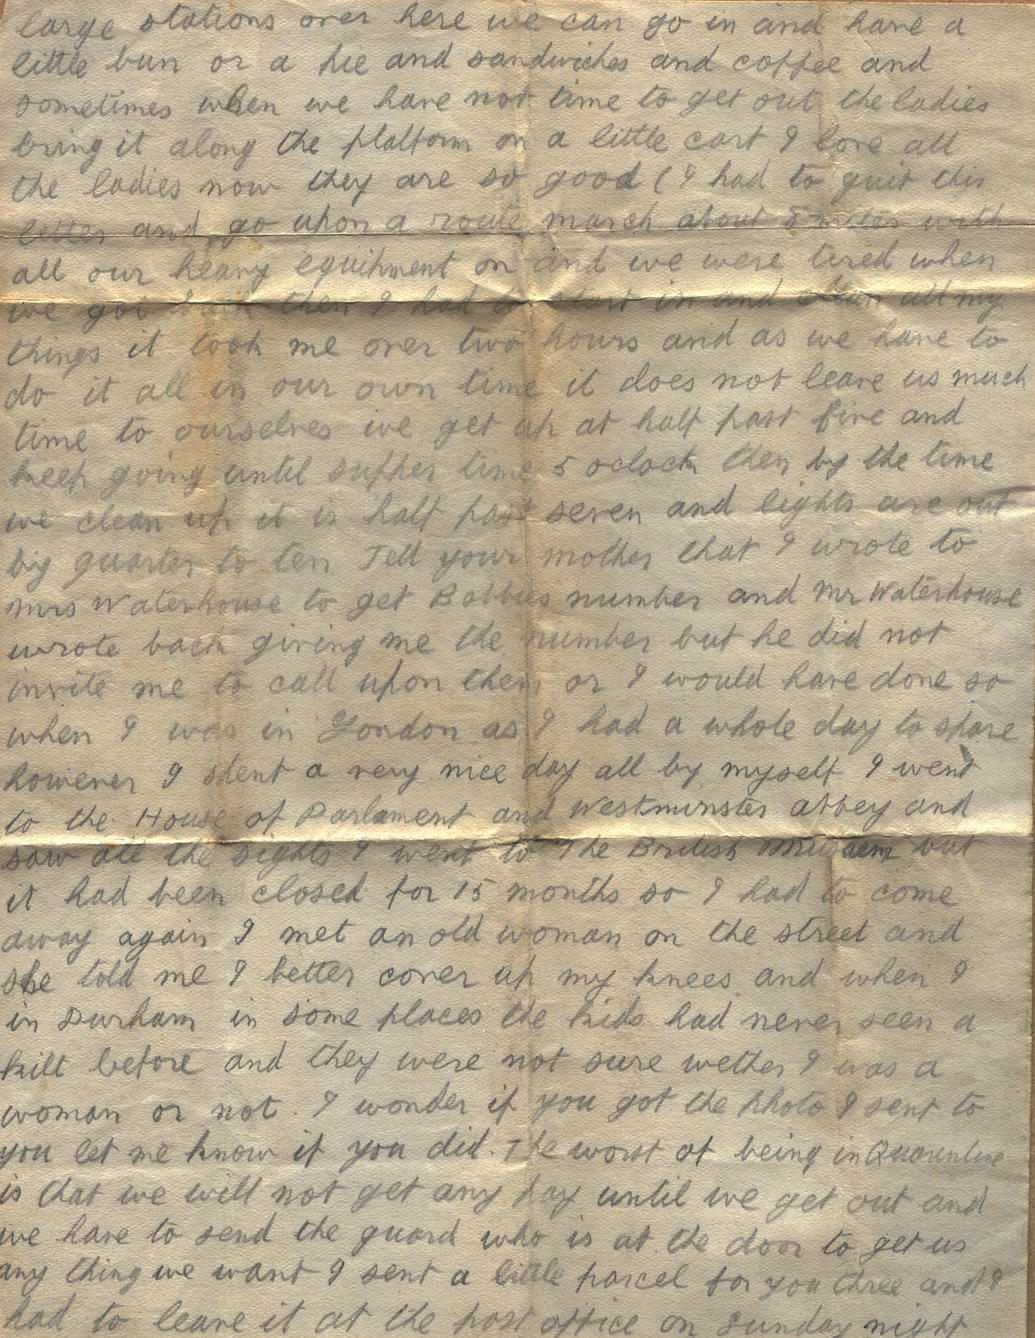 large stations over here we can go in and have a
little bun or a pie and sandwiches and coffee and
sometimes when we have not time to get out the ladies
bring it along the platform on a little cart I love all
the ladies now they are so good (I had to quit this
letter and go upon a route march about 8 miles with
all our heavy equipment on and we were tired when
we got back then I had to start in and clean all my
things it took me over two hours and as we have to
do it all in our own time it does not leave us much
time to ourselves we get up at half past five and
keep going until supper time 5 oclock then by the time
we clean up it is half past seven and lights are out
by quarter to ten Tell your mother that I wrote to
Mrs Waterhouse to get Bobbies number and Mr Waterhouse
wrote back giving me the number but he did not
invite me to call upon them or I would have done so
when I was in London as I had a whole day to spare
however I spent a very nice day all by myself I went
to the House of Parlament and Westminster abbey and
saw all the sights I went to The British Musaem but
it had been closed for 15 months so I had to come
away again I met an old woman on the street and
she told me I better cover up my knees and when I
in Durham in some places the kids had never seen a
kilt before and they were not sure wether I was a
woman or not. I wonder if you got the photo I sent to
you let me know if you did. The worst of being in Quarentine
is that we will not get any pay until we get out and
we have to send the guard who is at the door to get us
any thing we want I sent a little parcel for you three and I
had to leave it at the post office on Sunday night